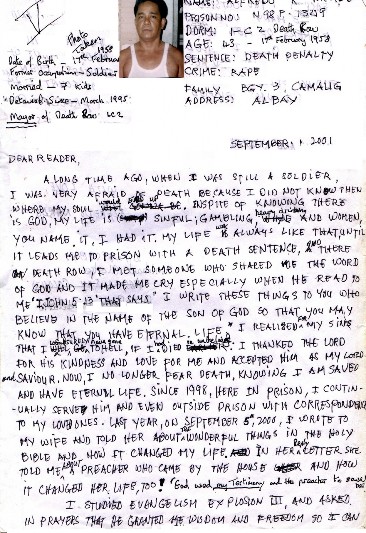 V.
Photo
Taken
1958
Date of Birth - 17th February
Former Occupation - Soldier
Married - 7 Kids
Detained Since - March 1995
Mayor of Death Row 1-C2
PRISON NO: N98P-
DORM: 1-C2 Death Row
AGE: 43 - 17th February 1958
SENTENCE: DEATH PENALTY
CRIME: RAPE
FAMILY BGY. 3, CAMALIG
ADDRESS: ALBAY
SEPTEMBER, 2001
DEAR READER,
A LONG TIME AGO, WHEN I WAS STILL A SOLDIER,
I WAS VERY AFRAID OF DEATH BECAUSE I DID NOT KNOW THEN
WHERE MY SOUL would END UP. INSPITE OF KNOWING THERE
IS GOD, MY LIFE IS SINFUL, GAMBLING, heavy drinking AND WOMEN,
YOU NAME, IT, I HAD IT. MY LIFE was ALWAYS LIKE THAT UNTIL
IT LEADS ME TO PRISON WITH A DEATH SENTENCE, AND THERE
DEATH ROW, I MET SOMEONE WHO SHARED ME THE WORD
OF GOD AND IT MADE ME CRY ESPECIALLY WHEN HE READ TO
ME "I JOHN 5:13 THAT SAYS" I WRITE THESE THINGS TO YOU WHO
BELIEVE IN THE NAME OF THE SON OF GOD SO THAT YOU MAY
KNOW THAT YOU HAVE ETERNAL LIFE." I REALISED my SINS
THAT I would have gone TO HELL, IF I had DIED. I THANKED THE LORD
FOR HIS KINDNESS AND LOVE FOR ME AND ACCEPTED HIM AS MY LORD
and SAVIOUR. NOW, I NO LONGER FEAR DEATH, KNOWING I AM SAVED
AND HAVE ETERNAL LIFE. SINCE 1998, HERE IN PRISON, I CONTIN-
-UALLY SERVE HIM AND EVEN OUTSIDE PRISON WITH CORRESPONDING
TO MY LOVEONES. LAST YEAR, ON SEPTEMBER 5th, 2000, I WROTE TO
MY WIFE AND TOLD HER ABOUT the WONDERFUL THINGS IN THE HOLY
BIBLE AND, HOW IT CHANGED MY LIFE. IN HER Reply LETTER SHE
TOLD ME, ABOUT A PREACHER WHO CAME BY THE HOUSE AND HOW
IT CHANGED HER LIFE, TOO! (God used my Testimony and the preacher to save
I STUDIED EVANGELISM EXPLOSION III, AND ASKED,
IN PRAYERS THAT HE GRANTED ME WISDOM AND FREEDOM SO I CAN